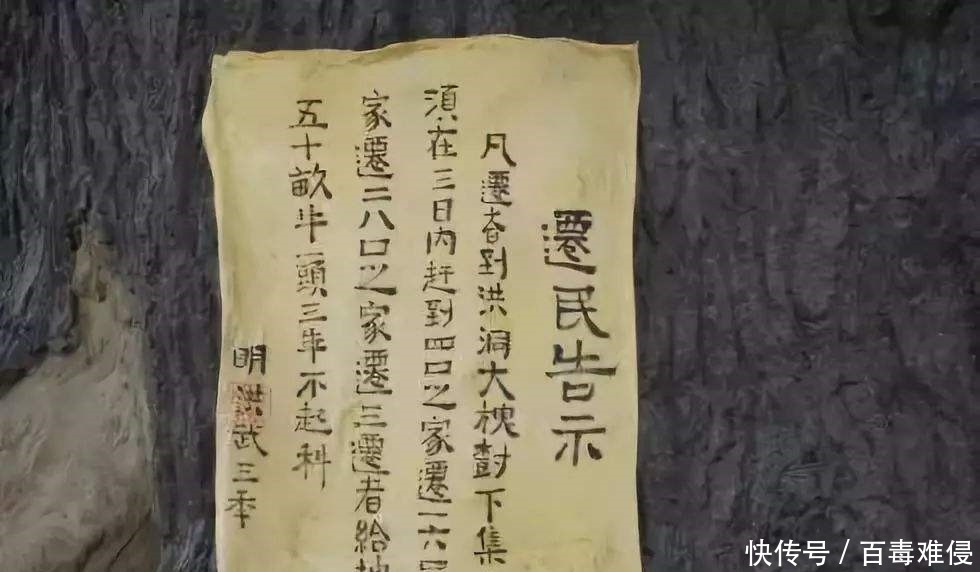 遷民告示
凡遷者到洪洞大槐樹下集
須在三日內赶到四口之家遷一六
家遷二八口之家遷三遷者給
五十畝牛一頭三年不起科
明洪武三年
快传号 / 百毒难侵